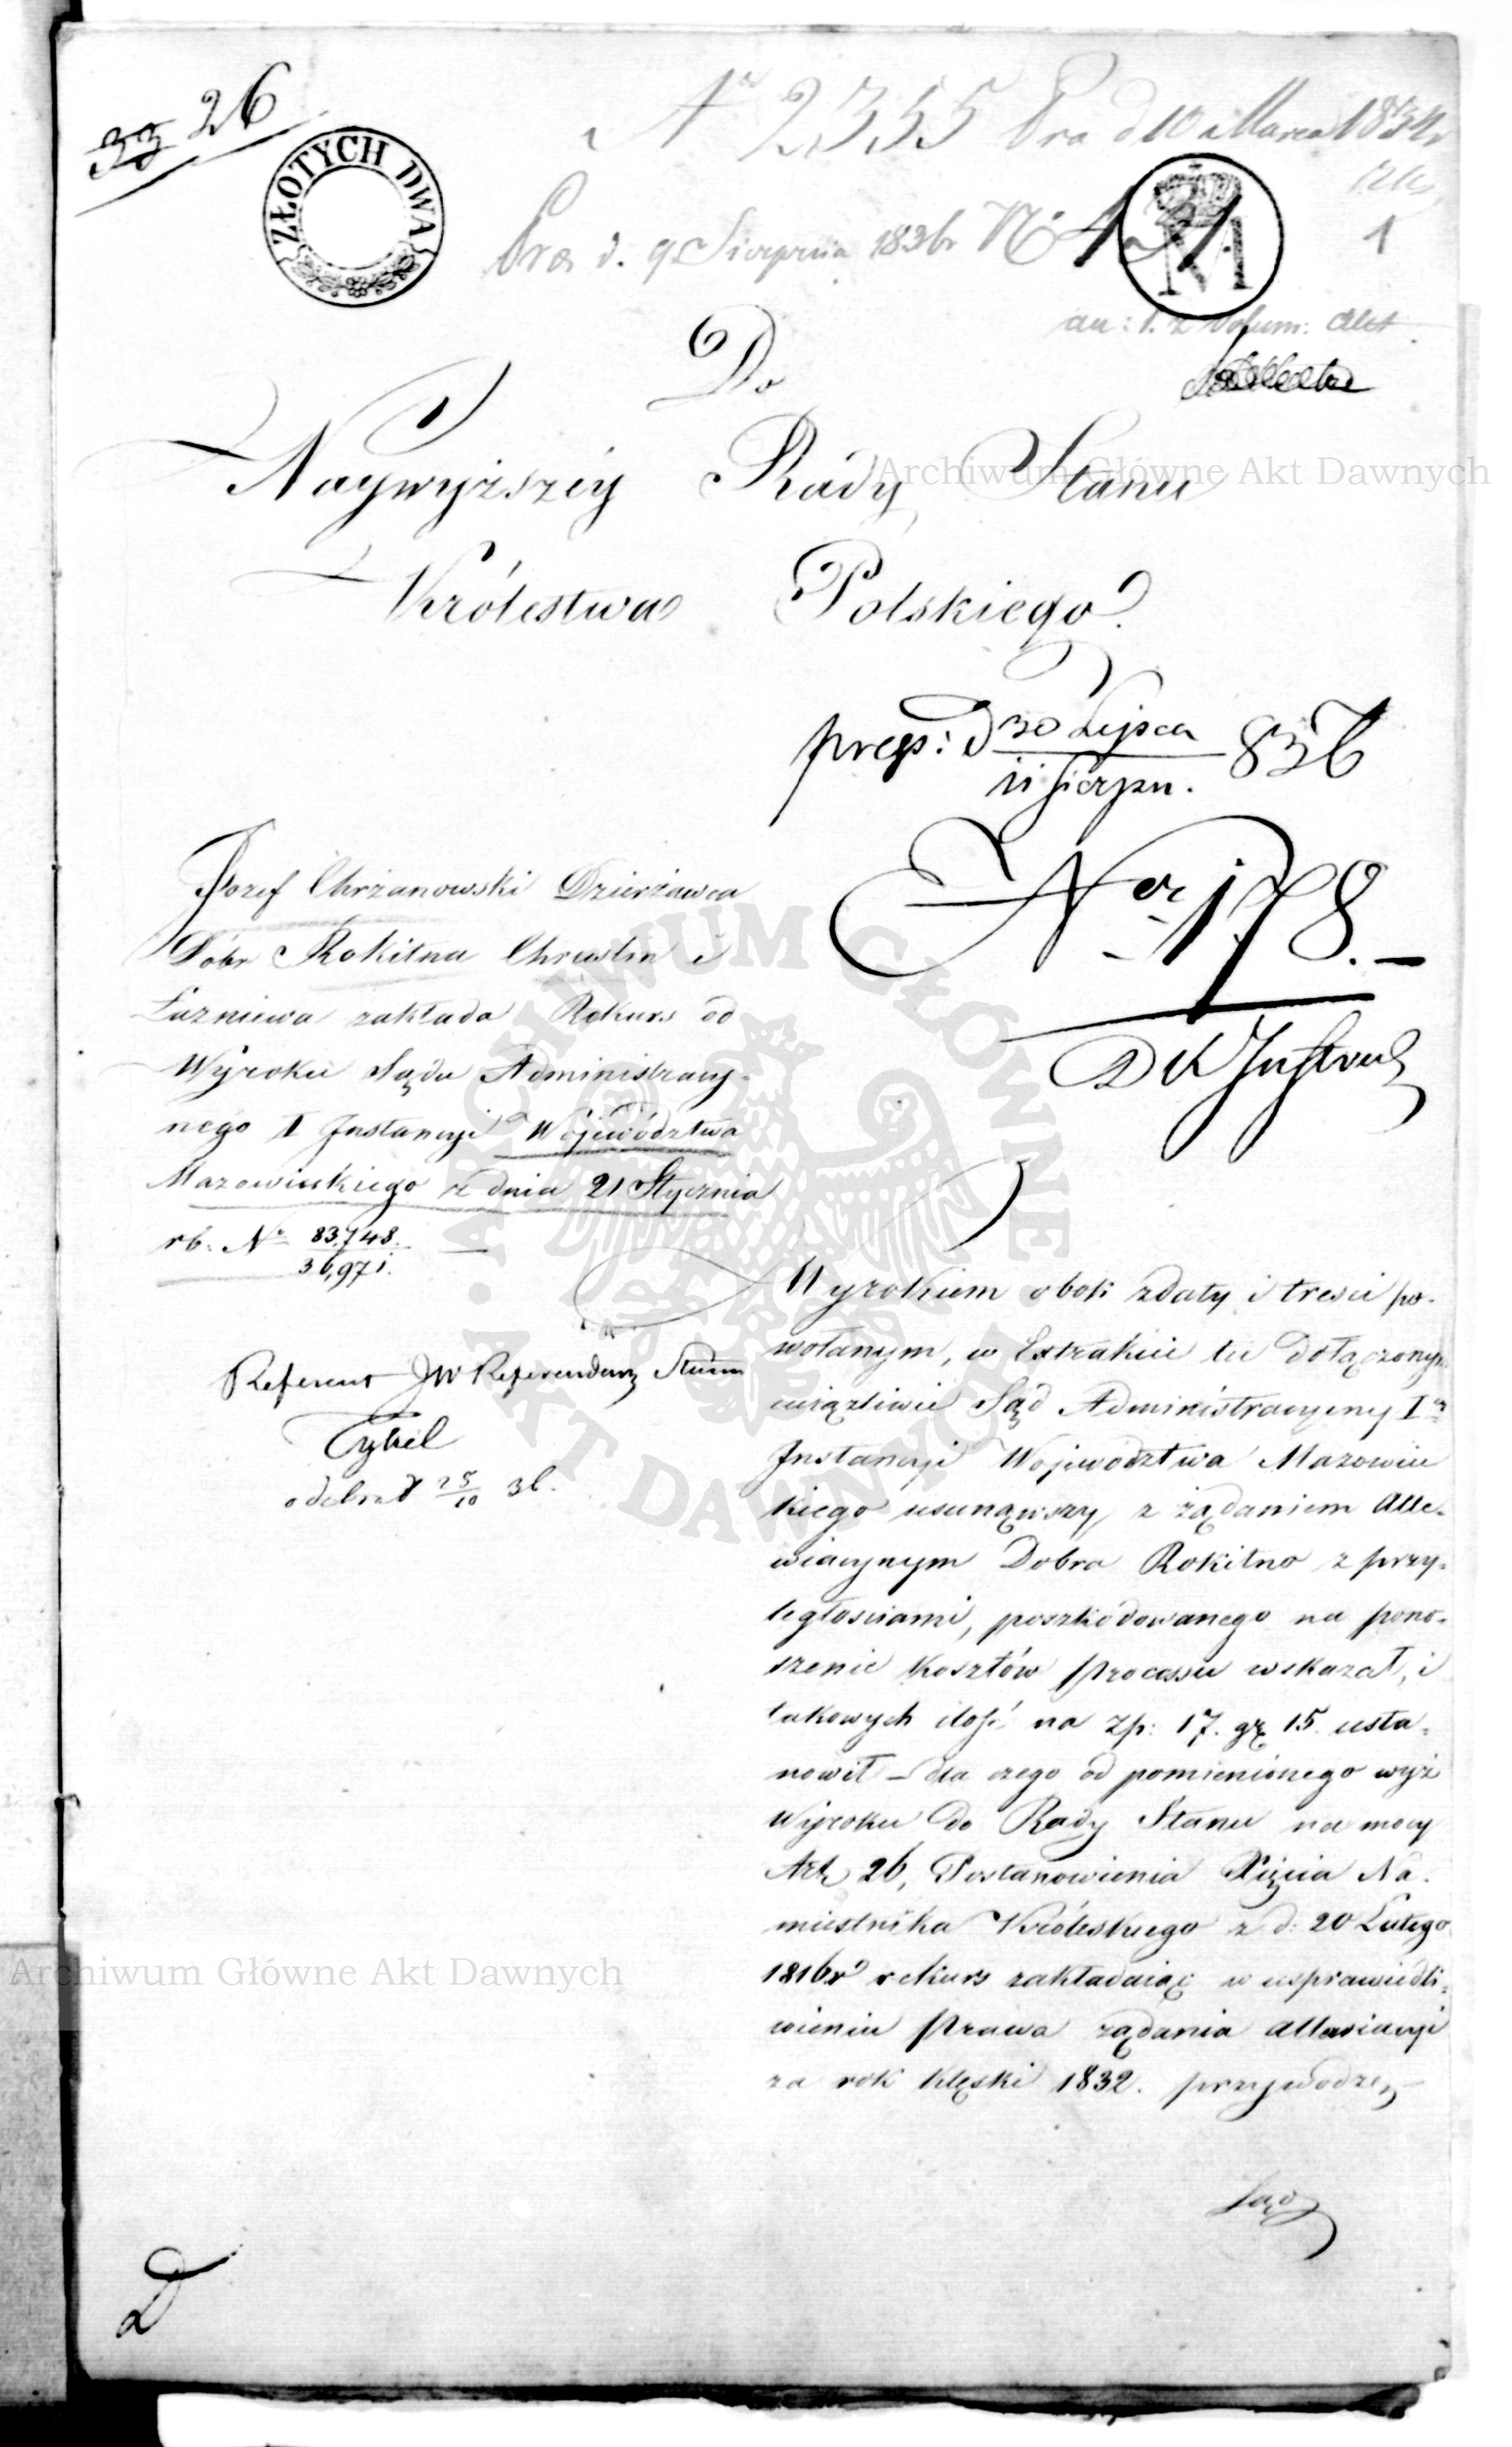 33 26
Nº 2355 Pra d 10 Marca 1834
ZŁOTYCH DWA
1
Pra d. 9 Sierpnia 1836r Nº
an: 1. 2 Volum: Akt
Do
Naywyższéy Rady Stanu
Królestwa Polskiego
preps: d 30 Lipca / 11 Sierpn. 836
Nor 178.
Józef Chrzanowski Dzierżawca
Dóbr Rokitna Chruslin i
Łazniewa zakłada Rekurs od
Wyroku Sądu Administracyj-
nego I Instancyi Województwa
Mazowieckiego z dnia 21 Stycznia
rb. Nº 83,748. / 36,971.
Referent JW Referendarz Stanu
Tykel
odebrał 25/10 36.
Wyrokiem obok zdaty i treści po-
wołanym, w Extrakcie tu dołączonym
uciążliwie Sąd Administracyiny I
Instancyi Województwa Mazowiec
kiego usunąwszy z żądaniem Alle-
wiacyinym Dobra Rokitno z przy-
ległościami, poszkódowanego na pono-
szenie kosztów processu wskazał, i
takowych ilość na Zp: 17. gr 15. usta-
nowił – dla czego od pomienionego wyż
Wyroku do Rady Stanu na mocy
Art. 26, Postanowienia Xięcia Na-
miestnika Królewskiego z d: 20 Lutego
1816r rekurs zakładaiąc w usprawiedli-
wieniu prawa żądania allewiacyi
za rok klęski 1832. przywodzę,
Sąd
D
Archiwum Główne Akt Dawnych
ARCHIWUM GŁÓWNE AKT DAWNYCH
Archiwum Główne Akt Dawnych